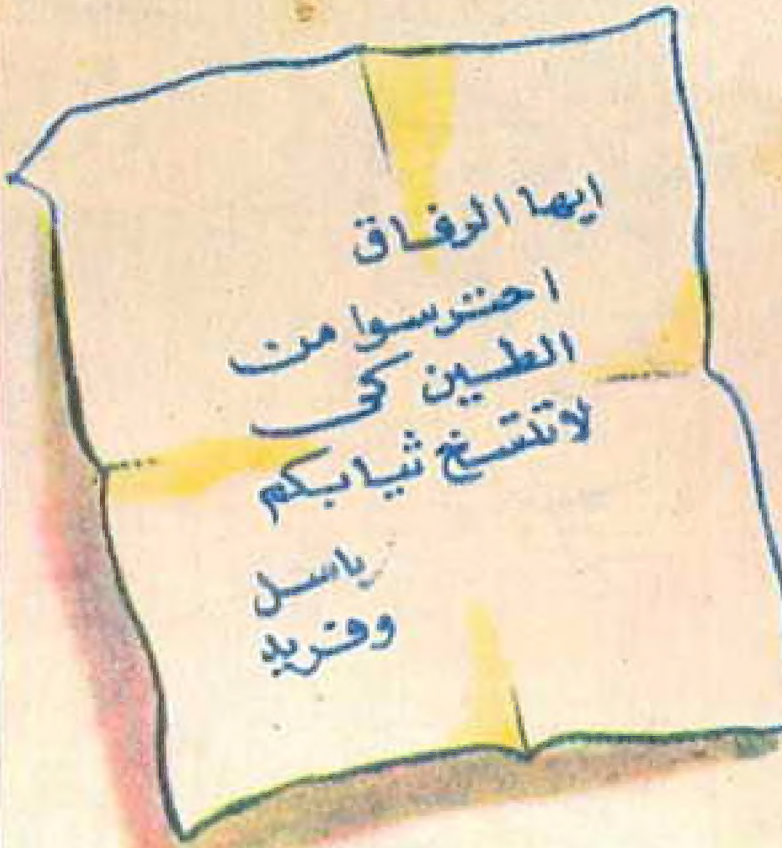 ايها الرفاق
احترسوا من
الطين كى
لاتتسخ ثيابكم
باسل
وفريد